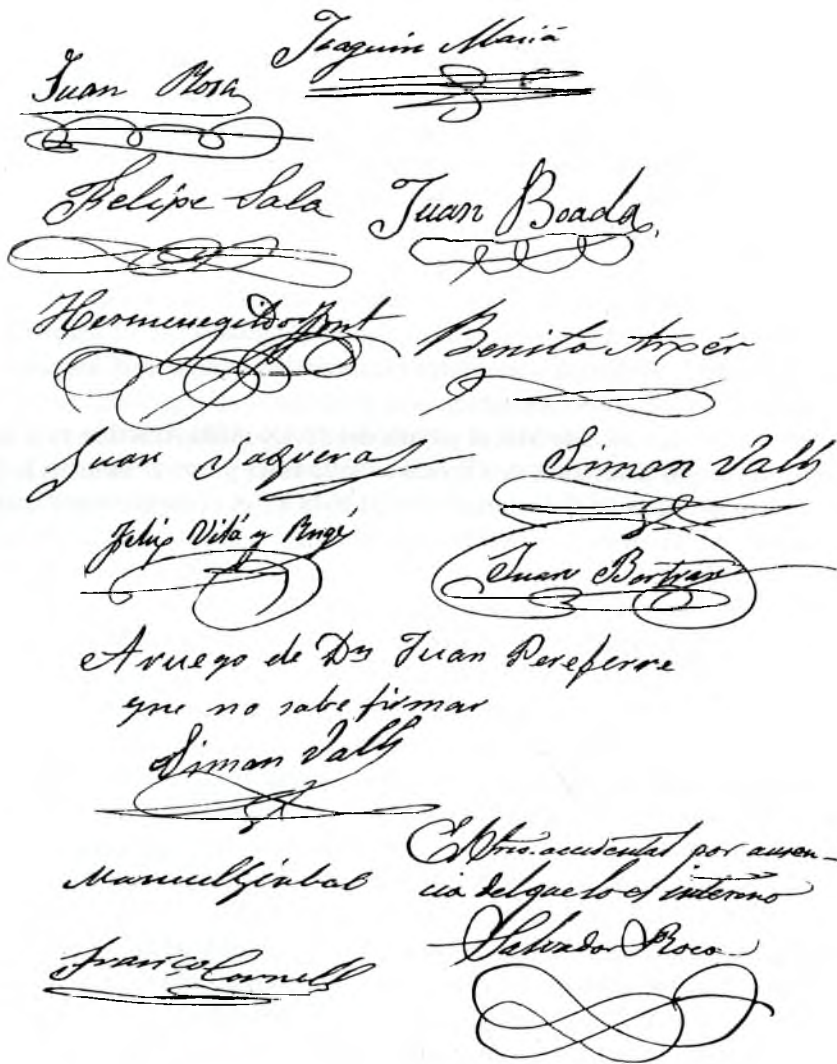 Joaquin Mariá
Juan Rosa
Felipe Sala
Juan Boada
Hermenegildo
Benito Arxér
Juan Saguera
Simon Valls
Felip Vilá y
Juan Bertran
A ruego de Dn Juan Pereferre
que no sabe firmar
Simon Valls
El Srio. accidental por ausen-
cia del que lo es interino
Manuel
Salvador Roca
Franço Cornell